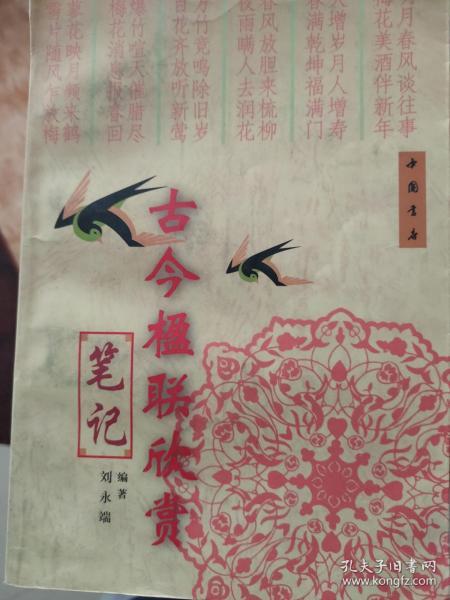 月春风谈往事
梅花美酒伴新年
增岁月人增寿
春满乾坤福满门
春风放胆来梳柳
夜雨瞒人去润花
万竹竟鸣除旧岁
百花齐放听新莺
爆竹喧天催腊尽
梅花消息报春回
花映月频来鹤
随风
梅
中国书店
古今楹联欣赏
笔记
编著
刘永端
孔夫子旧书网
www.kongfz.com